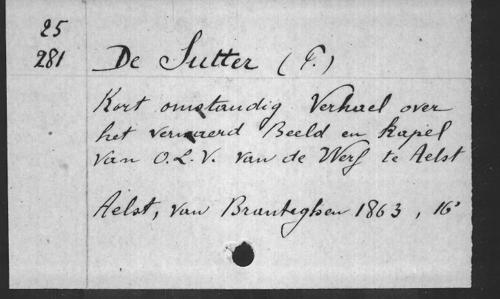 25
281
De Sutter (F.)
Kort omstandig Verhael over
het vermaerd Beeld en Kapel
van O.L.V. van de Werf te Aelst
Aelst, van Branteghen 1863, 16°